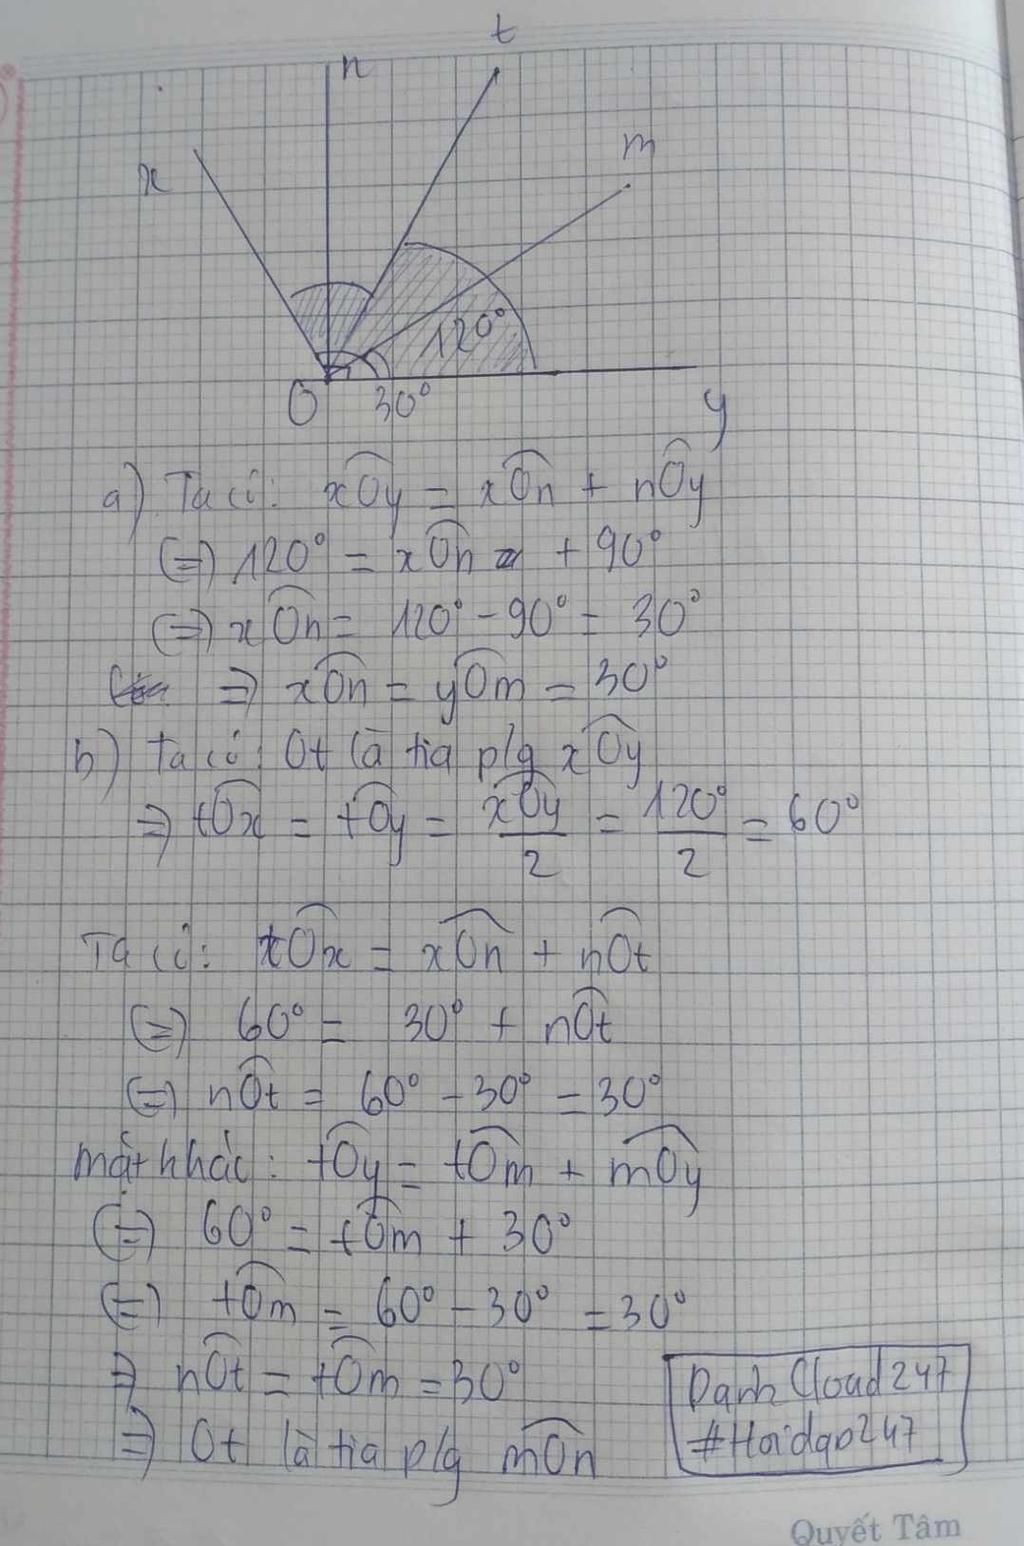 t
n
m
x
120°
O
30°
y
a) Ta có: xOy = xOn + nOy
(=) 120° = xOn + 90°
(=) xOn = 120° - 90° = 30°
=> xOn = yOm = 30°
b) Ta có: Ot là tia p/g xOy
=> tOx = tOy = xOy/2 = 120°/2 = 60°
Ta có: tOx = xOn + nOt
(=) 60° = 30° + nOt
(=) nOt = 60° - 30° = 30°
mặt khác: tOy = tOm + mOy
(=) 60° = tOm + 30°
(=) tOm = 60° - 30° = 30°
=> nOt = tOm = 30°
=> Ot là tia p/g mOn
Danh Cloud247
#Hoidap247
Quyết Tâm